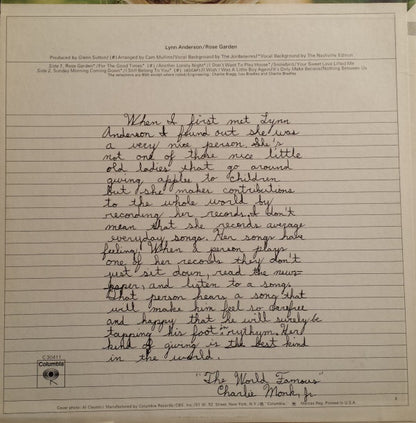 Lynn Anderson/Rose Garden
Produced by Glenn Sutton/(#)Arranged by Cam Mullins/Vocal Background by The Jordanaires/*Vocal Background by The Nashville Edition
Side 1. Rose Garden*/For The Good Times* (#)/Another Lonely Night*/I Don't Want To Play House*/Snowbird/Your Sweet Love Lifted Me
Side 2. Sunday Morning Coming Down*/I Still Belong To You* (#)/I Wish I Was A Little Boy Again/It's Only Make Believe/Nothing Between Us
When I first met Lynn
Anderson I found out she was
a very nice person. She's
not one of those nice little
old ladies that go around
giving apples to children
but she makes contributions
to the whole world by
recording her records. I don't
mean that she records average
everyday songs. Her songs have
feeling! When a person plays
one of her records they don't
just sit down, read the news-
paper, and listen to a song.
That person hears a song that
will make him feel so carefree
and happy that he will surely be
tapping his foot in rythym. Her
kind of giving is the best kind
in the world.
"The World Famous"
Charlie Monk, Jr.
C 30411
Columbia
Cover photo: Al Clayton/Manufactured by Columbia Records/CBS, Inc./51 W. 52 Street, New York, N.Y./® "Columbia," Marcas Reg. Printed in U.S.A.